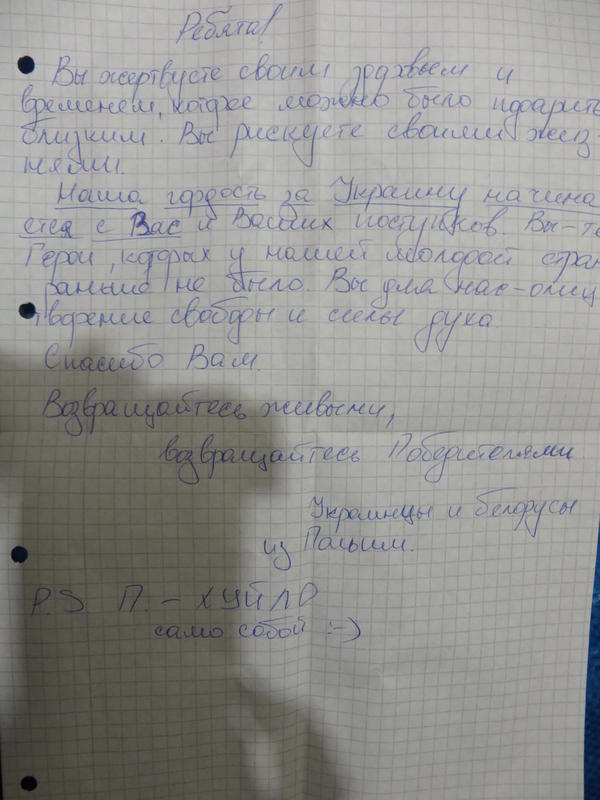 Ребята!
Вы жертвуете своим здоровьем и
временем, которое можно было подарить
близким. Вы рискуете своими жиз-
нями.
Наша гордость за Украину начина
ется с Вас и Ваших поступков. Вы-те
Герои, которых у нашей молодой стран
раньше не было. Вы для нас-олиц
творение свободы и силы духа.
Спасибо Вам.
Возвращайтесь живыми,
возвращайтесь Победителями
Украинцы и белорусы
из Польши.
P.S. П. - ХУЙЛО
само собой :-)